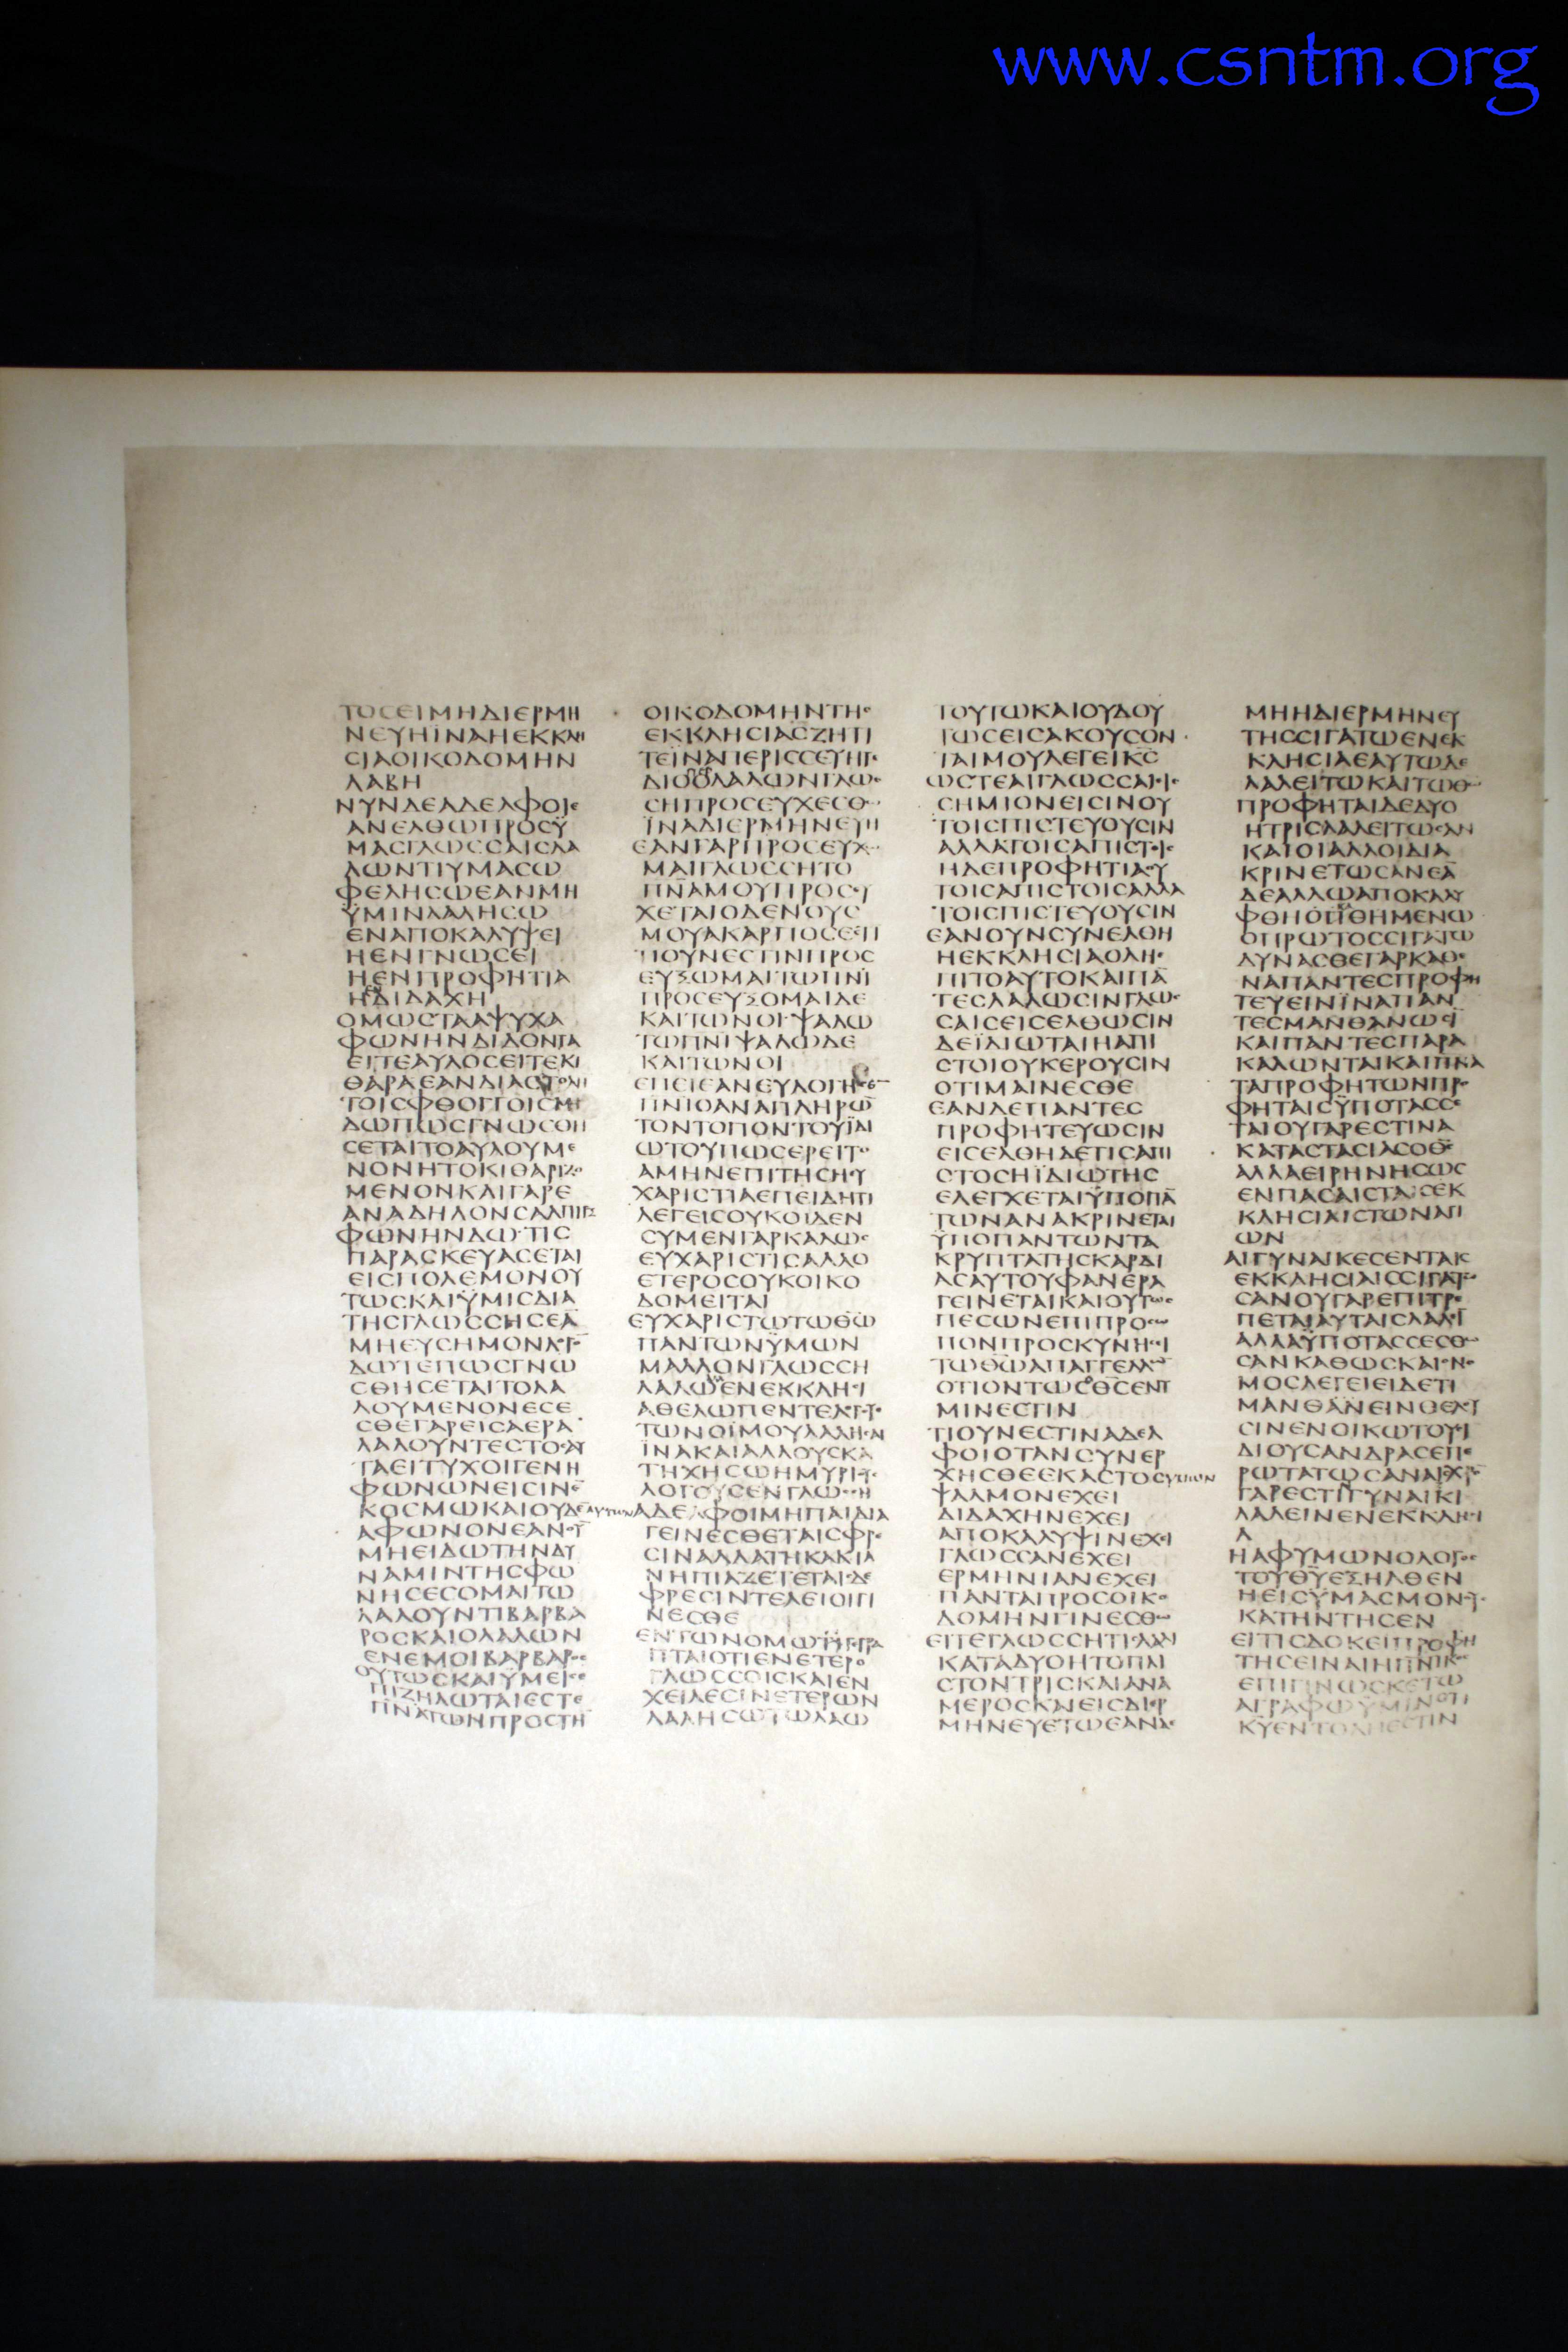 www.csntm.org
ΤΟCΕΙΜΗΔΙΕΡΜΗ
ΝΕΥΗΪΝΑΗΕΚΚΛΗ
CΙΑΟΙΚΟΔΟΜΗΝ
ΛΑΒΗ
ΝΥΝΔΕΑΔΕΛΦΟΙΕ
ΑΝΕΛΘΩΠΡΟCΫ
ΜΑCΓΛΩCCΑΙCΛΑ
ΛΩΝΤΙΥΜΑCΩ
ΦΕΛΗCΩΕΑΝΜΗ
ΫΜΙΝΛΑΛΗCΩ
ΕΝΑΠΟΚΑΛΥΨΕΙ
ΗΕΝΓΝΩCΕΙ
ΗΕΝΠΡΟΦΗΤΙΑ
ΗΔΙΔΑΧΗ
ΟΜΩCΤΑΑΨΥΧΑ
ΦΩΝΗΝΔΙΔΟΝΤΑ
ΕΙΤΕΑΥΛΟCΕΙΤΕΚΙ
ΘΑΡΑΕΑΝΔΙΑCΤΟΛΗ
ΤΟΙCΦΘΟΓΓΟΙCΜΗ
ΔΩΠΩCΓΝΩCΘΗ
CΕΤΑΙΤΟΑΥΛΟΥΜΕ
ΝΟΝΗΤΟΚΙΘΑΡΙΖΟ
ΜΕΝΟΝΚΑΙΓΑΡΕ
ΑΝΑΔΗΛΟΝCΑΛΠΙΓΞ
ΦΩΝΗΝΔΩΤΙC
ΠΑΡΑCΚΕΥΑCΕΤΑΙ
ΕΙCΠΟΛΕΜΟΝΟΥ
ΤΩCΚΑΙΫΜΙCΔΙΑ
ΤΗCΓΛΩCCΗCΕΑ̅
ΜΗΕΥCΗΜΟΝΛΟΓΟ̅
ΔΩΤΕΠΩCΓΝΩ
CΘΗCΕΤΑΙΤΟΛΑ
ΛΟΥΜΕΝΟΝΕCΕ
CΘΕΓΑΡΕΙCΑΕΡΑ
ΛΑΛΟΥΝΤΕCΤΟCΑΥ
ΤΑΕΙΤΥΧΟΙΓΕΝΗ
ΦΩΝΩΝΕΙCΙΝΕ̅
ΚΟCΜΩΚΑΙΟΥΔΕΑΥΤΩΝ
ΑΦΩΝΟΝΕΑΝΟΥ̅
ΜΗΕΙΔΩΤΗΝΔΥ
ΝΑΜΙΝΤΗCΦΩ
ΝΗCΕCΟΜΑΙΤΩ
ΛΑΛΟΥΝΤΙΒΑΡΒΑ
ΡΟCΚΑΙΟΛΑΛΩΝ
ΕΝΕΜΟΙΒΑΡΒΑΡΟC
ΟΥΤΩCΚΑΙΫΜΕΙCΕ
ΠΙΖΗΛΩΤΑΙΕCΤΕ
ΠΝΑΤΩΝΠΡΟCΤΗ
ΟΙΚΟΔΟΜΗΝΤΗC
ΕΚΚΛΗCΙΑCΖΗΤΙ
ΤΕΪΝΑΠΕΡΙCCΕΥΗΤΕ
ΔΙΟΟΛΑΛΩΝΓΛΩC
CΗΠΡΟCΕΥΧΕCΘΩ
ΪΝΑΔΙΕΡΜΗΝΕΥΗ
ΕΑΝΓΑΡΠΡΟCΕΥΧΟ
ΜΑΙΓΛΩCCΗΤΟ
ΠΝ̅ΑΜΟΥΠΡΟCΕΥ
ΧΕΤΑΙΟΔΕΝΟΥC
ΜΟΥΑΚΑΡΠΟCΕCΤΙ
ΤΙΟΥΝΕCΤΙΝΠΡΟC
ΕΥΞΩΜΑΙΤΩΠΝΙ
ΠΡΟCΕΥΞΟΜΑΙΔΕ
ΚΑΙΤΩΝΟΙΨΑΛΩ
ΤΩΠΝΙΨΑΛΩΔΕ
ΚΑΙΤΩΝΟΙ
ΕΠΕΙΕΑΝΕΥΛΟΓΗC
ΠΝΙΟΑΝΑΠΛΗΡΩ̅
ΤΟΝΤΟΠΟΝΤΟΥΪΔΙ
ΩΤΟΥΠΩCΕΡΕΙΤΟ
ΑΜΗΝΕΠΙΤΗCΗΕΥ
ΧΑΡΙCΤΙΑΕΠΕΙΔΗΤΙ
ΛΕΓΕΙCΟΥΚΟΙΔΕΝ
CΥΜΕΝΓΑΡΚΑΛΩC
ΕΥΧΑΡΙCΤΙCΑΛΛΟ
ΕΤΕΡΟCΟΥΚΟΙΚΟ
ΔΟΜΕΙΤΑΙ
ΕΥΧΑΡΙCΤΩΤΩΘΩ̅
ΠΑΝΤΩΝΫΜΩΝ
ΜΑΛΛΟΝΓΛΩCCΗ
ΛΑΛΩΕΝΕΚΚΛΗCΙ
ΑΘΕΛΩΠΕΝΤΕΛΟΓΟΥ
ΤΩΝΟΪΜΟΥΛΑΛΗCΑΙ
ΪΝΑΚΑΙΑΛΛΟΥCΚΑ
ΤΗΧΗCΩΗΜΥΡΙΟΥC
ΛΟΓΟΥCΕΝΓΛΩCCΗ
ΑΔΕΛΦΟΙΜΗΠΑΙΔΙΑ
ΓΕΙΝΕCΘΕΤΑΙCΦΡΕ
CΙΝΑΛΛΑΤΗΚΑΚΙΑ
ΝΗΠΙΑΖΕΤΕΤΑΙCΔΕ
ΦΡΕCΙΝΤΕΛΕΙΟΙΓΙ
ΝΕCΘΕ
ΕΝΤΩΝΟΜΩΓΕΓΡΑ
ΠΤΑΙΟΤΙΕΝΕΤΕΡΟ
ΓΛΩCCΟΙCΚΑΙΕΝ
ΧΕΙΛΕCΙΝΕΤΕΡΩΝ
ΛΑΛΗCΩΤΩΛΑΩ
ΤΟΥΤΩΚΑΙΟΥΔΟΥ
ΤΩCΕΙCΑΚΟΥCΟΝ
ΤΑΙΜΟΥΛΕΓΕΙΚ̅C̅
ΩCΤΕΑΙΓΛΩCCΑΙΕΙC
CΗΜΙΟΝΕΙCΙΝΟΥ
ΤΟΙCΠΙCΤΕΥΟΥCΙΝ
ΑΛΛΑΤΟΙCΑΠΙCΤΟΙC
ΗΔΕΠΡΟΦΗΤΙΑΟΥ
ΤΟΙCΑΠΙCΤΟΙCΑΛΛΑ
ΤΟΙCΠΙCΤΕΥΟΥCΙΝ
ΕΑΝΟΥΝCΥΝΕΛΘΗ
ΗΕΚΚΛΗCΙΑΟΛΗΕ
ΠΙΤΟΑΥΤΟΚΑΙΠΑ̅
ΤΕCΛΑΛΩCΙΝΓΛΩC
CΑΙCΕΙCΕΛΘΩCΙΝ
ΔΕΪΔΙΩΤΑΙΗΑΠΙ
CΤΟΙΟΥΚΕΡΟΥCΙΝ
ΟΤΙΜΑΙΝΕCΘΕ
ΕΑΝΔΕΠΑΝΤΕC
ΠΡΟΦΗΤΕΥΩCΙΝ
ΕΙCΕΛΘΗΔΕΤΙCΑΠΙ
CΤΟCΗΪΔΙΩΤΗC
ΕΛΕΓΧΕΤΑΙΫΠΟΠΑ̅
ΤΩΝΑΝΑΚΡΙΝΕΤΑΙ
ΫΠΟΠΑΝΤΩΝΤΑ
ΚΡΥΠΤΑΤΗCΚΑΡΔΙ
ΑCΑΥΤΟΥΦΑΝΕΡΑ
ΓΕΙΝΕΤΑΙΚΑΙΟΥΤΩC
ΠΕCΩΝΕΠΙΠΡΟCΩ
ΠΟΝΠΡΟCΚΥΝΗCΙ
ΤΩΘΩ̅ΑΠΑΓΓΕΛΛΩ̅
ΟΤΙΟΝΤΩCΘCΕΝΥ
ΜΙΝΕCΤΙΝ
ΤΙΟΥΝΕCΤΙΝΑΔΕΛ
ΦΟΙΟΤΑΝCΥΝΕΡ
ΧΗCΘΕΕΚΑCΤΟCΥΜΩΝ
ΨΑΛΜΟΝΕΧΕΙ
ΔΙΔΑΧΗΝΕΧΕΙ
ΑΠΟΚΑΛΥΨΙΝΕΧΕΙ
ΓΛΩCCΑΝΕΧΕΙ
ΕΡΜΗΝΙΑΝΕΧΕΙ
ΠΑΝΤΑΠΡΟCΟΙΚΟ
ΔΟΜΗΝΓΙΝΕCΘΩ
ΕΙΤΕΓΛΩCCΗΤΙCΛΑΛΙ
ΚΑΤΑΔΥΟΗΤΟΠΛΙ
CΤΟΝΤΡΙCΚΑΙΑΝΑ
ΜΕΡΟCΚΑΙΕΙCΔΙΕΡ
ΜΗΝΕΥΕΤΩΕΑΝΔΕ
ΜΗΗΔΙΕΡΜΗΝΕΥ
ΤΗCCΙΓΑΤΩΕΝΕΚ
ΚΛΗCΙΑΕΑΥΤΩΔΕ
ΛΑΛΕΙΤΩΚΑΙΤΩΘΩ
ΠΡΟΦΗΤΑΙΔΕΔΥΟ
ΗΤΡΙCΛΑΛΕΙΤΩCΑΝ
ΚΑΙΟΙΑΛΛΟΙΔΙΑ
ΚΡΙΝΕΤΩCΑΝΕΑ̅
ΔΕΑΛΛΩΑΠΟΚΑΛΥ
ΦΘΗΚΑΘΗΜΕΝΩ
ΟΠΡΩΤΟCCΙΓΑΤΩ
ΔΥΝΑCΘΕΓΑΡΚΑΘΕ
ΝΑΠΑΝΤΕCΠΡΟΦΗ
ΤΕΥΕΙΝΪΝΑΠΑΝ
ΤΕCΜΑΝΘΑΝΩCΙ̅
ΚΑΙΠΑΝΤΕCΠΑΡΑ
ΚΑΛΩΝΤΑΙΚΑΙΠΝΑ
ΤΑΠΡΟΦΗΤΩΝΠΡΟ
ΦΗΤΑΙCΫΠΟΤΑCCΕ
ΤΑΙΟΥΓΑΡΕCΤΙΝΑ
ΚΑΤΑCΤΑCΙΑCΟΘC
ΑΛΛΑΕΙΡΗΝΗCΩC
ΕΝΠΑCΑΙCΤΑΙCΕΚ
ΚΛΗCΙΑΙCΤΩΝΑΓΙ
ΩΝ
ΑΙΓΥΝΑΙΚΕCΕΝΤΑΙC
ΕΚΚΛΗCΙΑΙCCΙΓΑΤΩ
CΑΝΟΥΓΑΡΕΠΙΤΡΕ
ΠΕΤΑΙΑΥΤΑΙCΛΑΛΙ
ΑΛΛΑΫΠΟΤΑCCΕCΘΩ
CΑΝΚΑΘΩCΚΑΙΟΝΟ
ΜΟCΛΕΓΕΙΕΙΔΕΤΙ
ΜΑΝΘΑΝΕΙΝΘΕΛΟΥ
CΙΝΕΝΟΙΚΩΤΟΥCΙ
ΔΙΟΥCΑΝΔΡΑCΕΠΕ
ΡΩΤΑΤΩCΑΝΑΙCΧΡΟ̅
ΓΑΡΕCΤΙΓΥΝΑΙΚΙ
ΛΑΛΕΙΝΕΝΕΚΚΛΗCΙ
Α
ΗΑΦΥΜΩΝΟΛΟΓΟC
ΤΟΥΘΥ̅ΕΞΗΛΘΕΝ
ΗΕΙCΫΜΑCΜΟΝΟΥC
ΚΑΤΗΝΤΗCΕΝ
ΕΙΤΙCΔΟΚΕΙΠΡΟΦΗ
ΤΗCΕΙΝΑΙΗΠΝΙΚΟC
ΕΠΙΓΙΝΩCΚΕΤΩ
ΑΓΡΑΦΩΫΜΙΝΟΤΙ
ΚΥ̅ΕΝΤΟΛΗΕCΤΙΝ